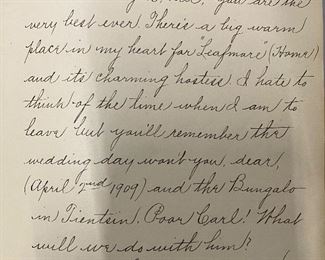 you are the
very best ever. There's a big warm
place in my heart for "Leafmore" (Home)
and its charming hostess. I hate to
think of the time when I am to
leave but you'll remember the
wedding day won't you, dear,
(April 2nd 1909) and the Bungalo
in Tientsin. Poor Carl! What
will we do with him?